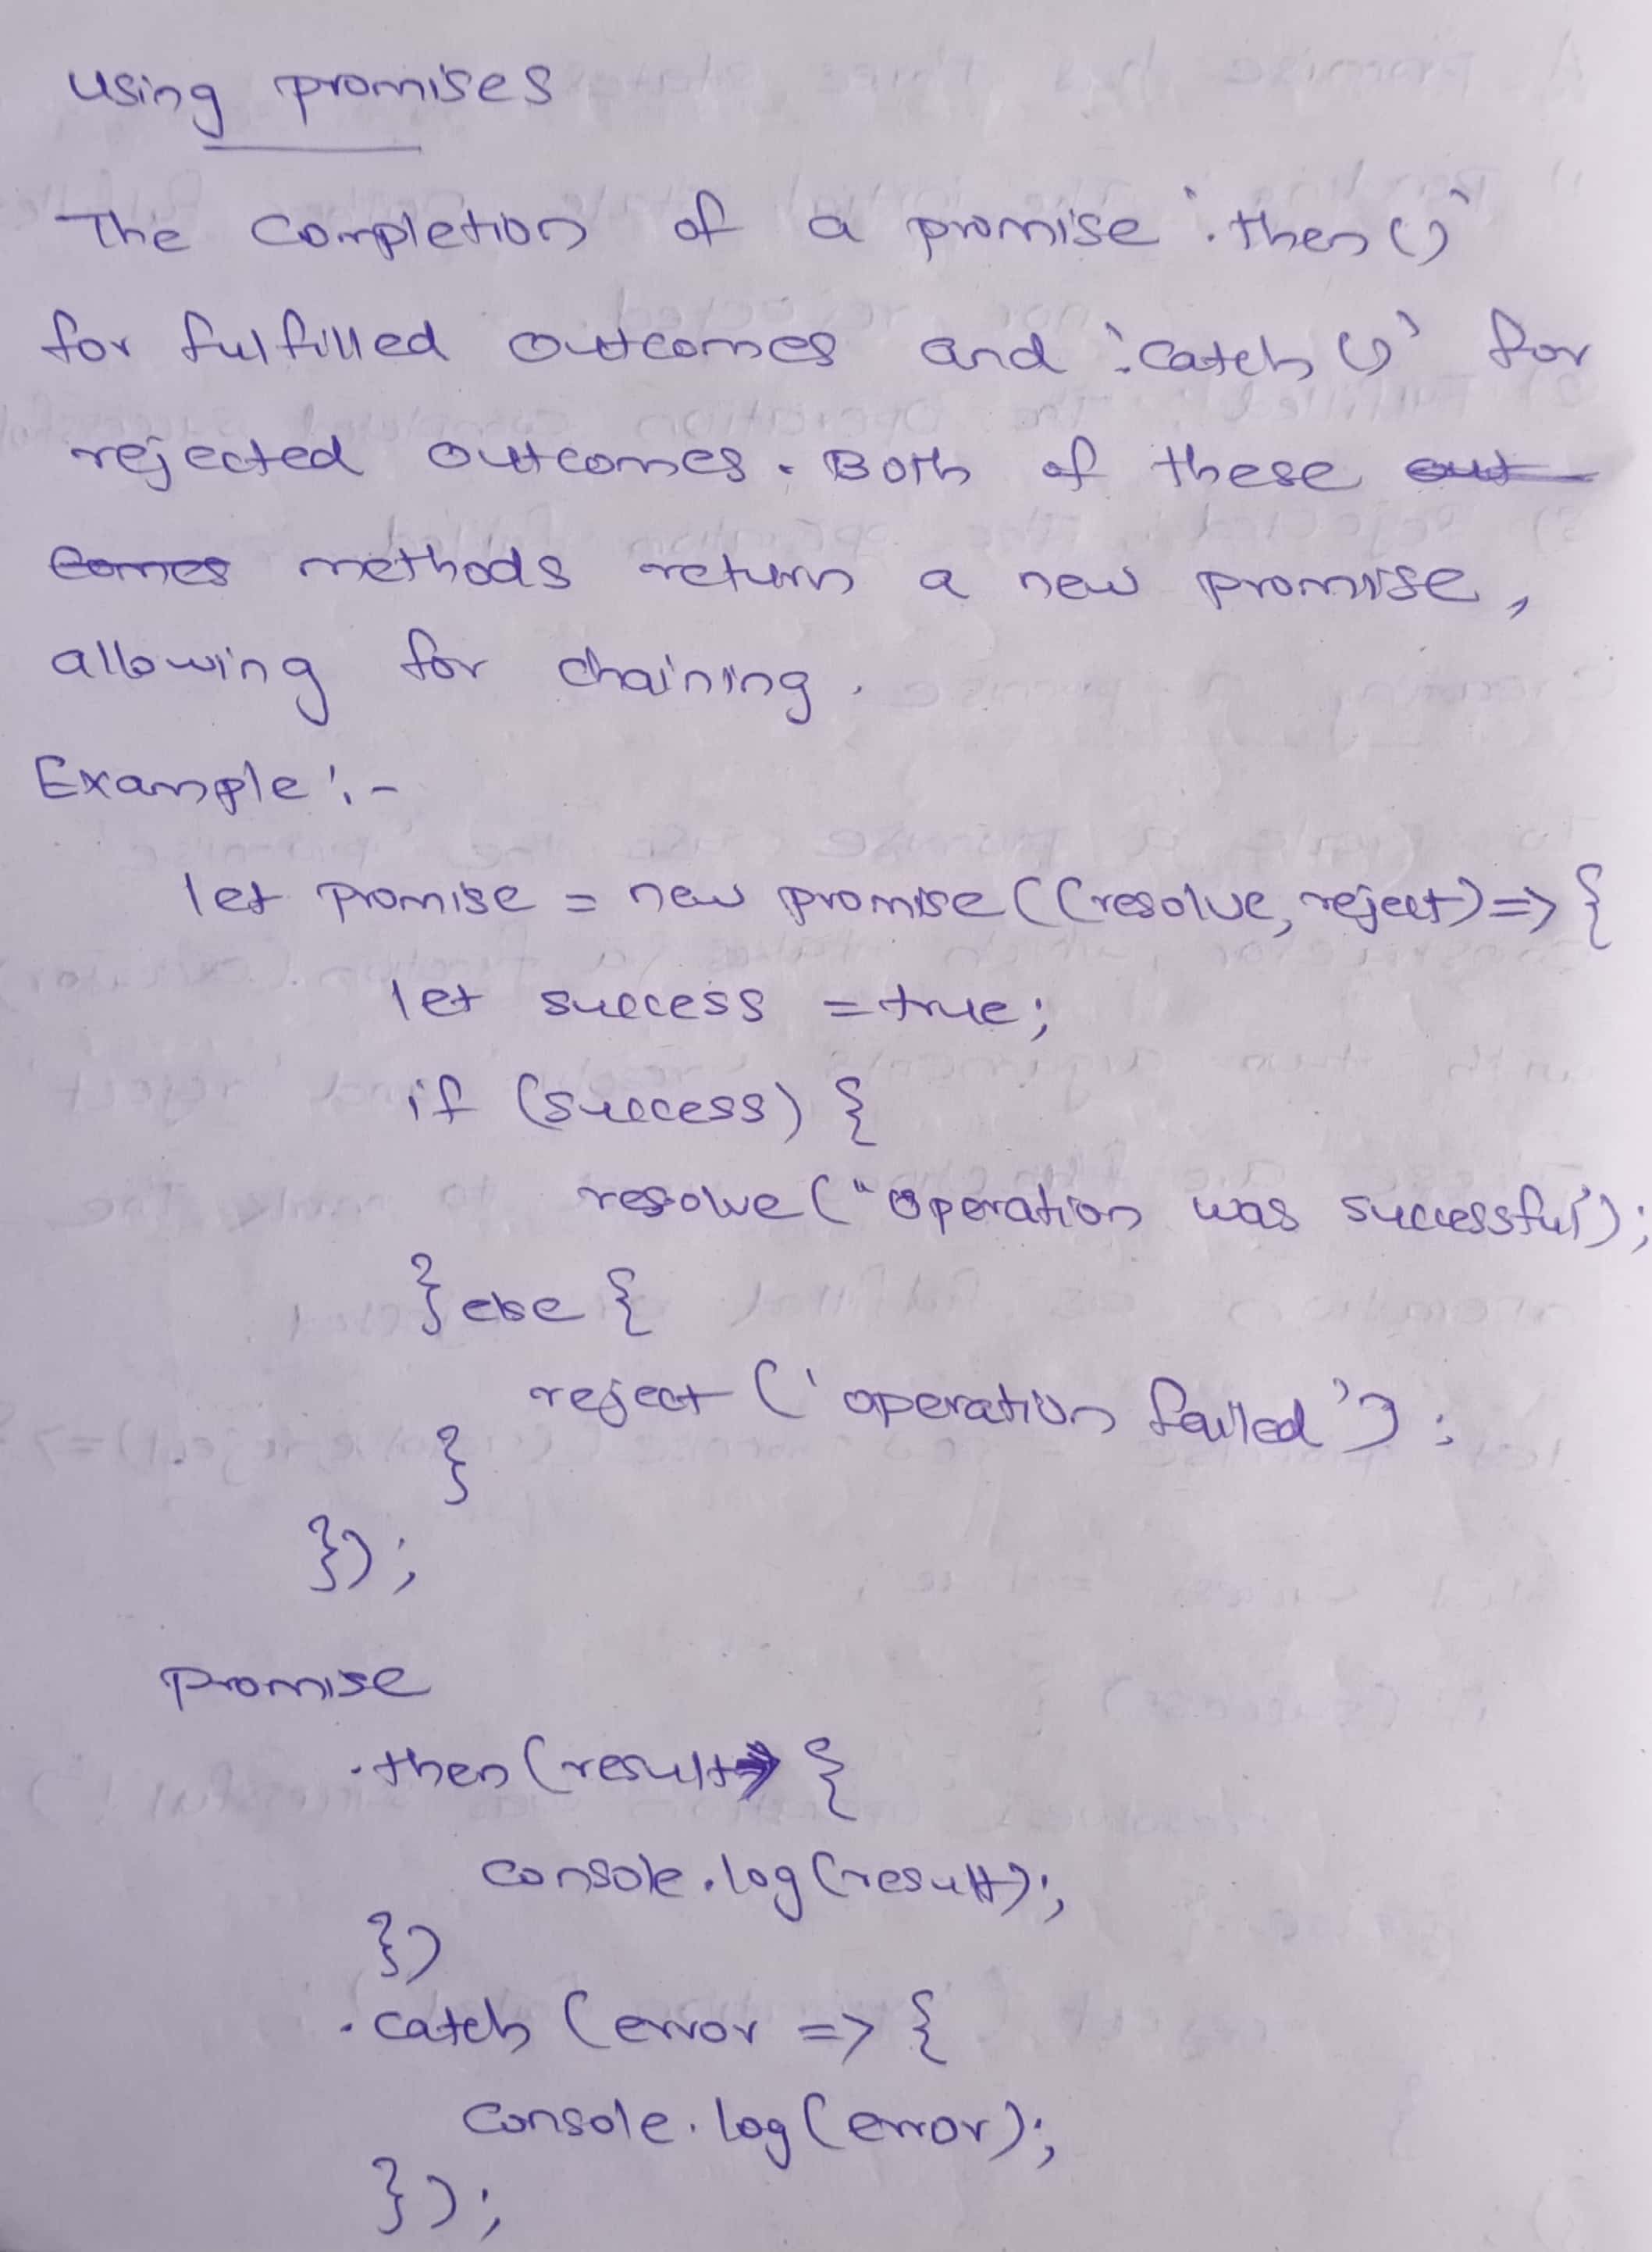 using promises
The completion of a promise '.then()'
for fulfilled outcomes and '.catch()' for
rejected outcomes. Both of these out
comes methods return a new promise,
allowing for chaining.
Example :-
let promise = new promise((resolve, reject) => {
let success = true;
if (success) {
resolve("operation was successful');
} else {
reject ('operation failed');
}
});
promise
.then(result => {
console.log(result);
})
.catch (error => {
console.log(error);
});